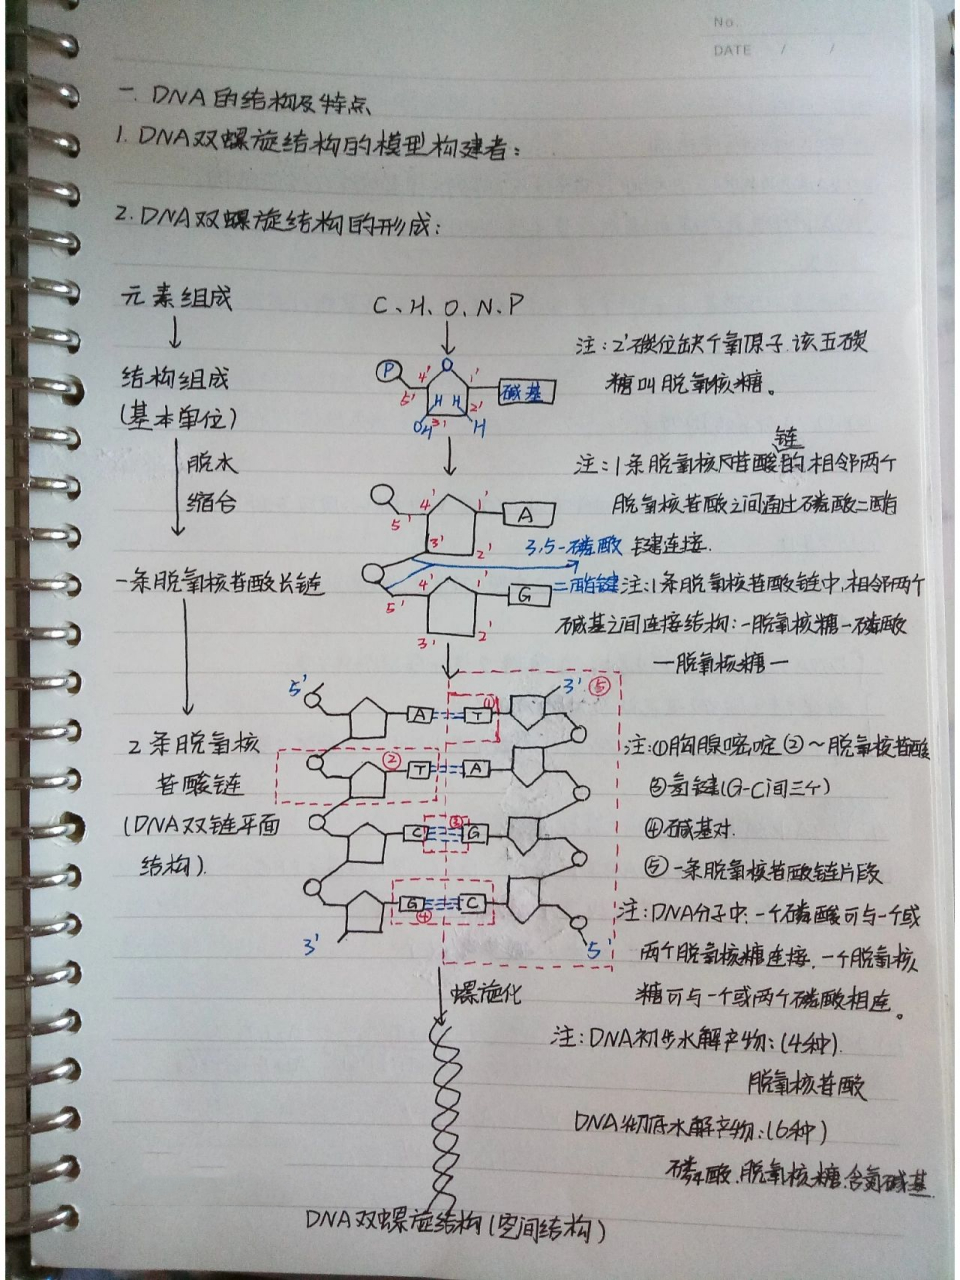 No.
DATE / /
一. DNA的结构及特点
1. DNA双螺旋结构的模型构建者:
2. DNA双螺旋结构的形成:
元素组成
C、H、O、N、P
注:2'碳位缺个氧原子.该五碳
糖叫脱氧核糖。
结构组成
(基本单位)
P
O
4'
1'
5'
H H
碱基
3'
2'
OH
H
脱水
缩合
链
注:1条脱氧核苷酸的相邻两个
脱氧核苷酸之间通过磷酸二酯
键连接.
4'
1'
5'
A
3'
2'
3,5-磷酸
二酯键
一条脱氧核苷酸长链
4'
1'
5'
G
3'
2'
注:1条脱氧核苷酸链中,相邻两个
碱基之间连接结构:一脱氧核糖一磷酸
一脱氧核糖一
5'
3'
⑤
①
A
T
2条脱氧核
苷酸链
(DNA双链平面
结构).
②
T
A
③
C
G
G
C
④
3'
5'
注:①胸腺嘧啶②~脱氧核苷酸
③氢键(G-C间三个)
④碱基对.
⑤一条脱氧核苷酸链片段
注:DNA分子中:一个磷酸可与一个或
两个脱氧核糖连接.一个脱氧核
糖可与一个或两个磷酸相连。
螺旋化
注:DNA初步水解产物:(4种).
脱氧核苷酸
DNA彻底水解产物:(6种)
磷酸.脱氧核糖.含氮碱基.
DNA双螺旋结构(空间结构)